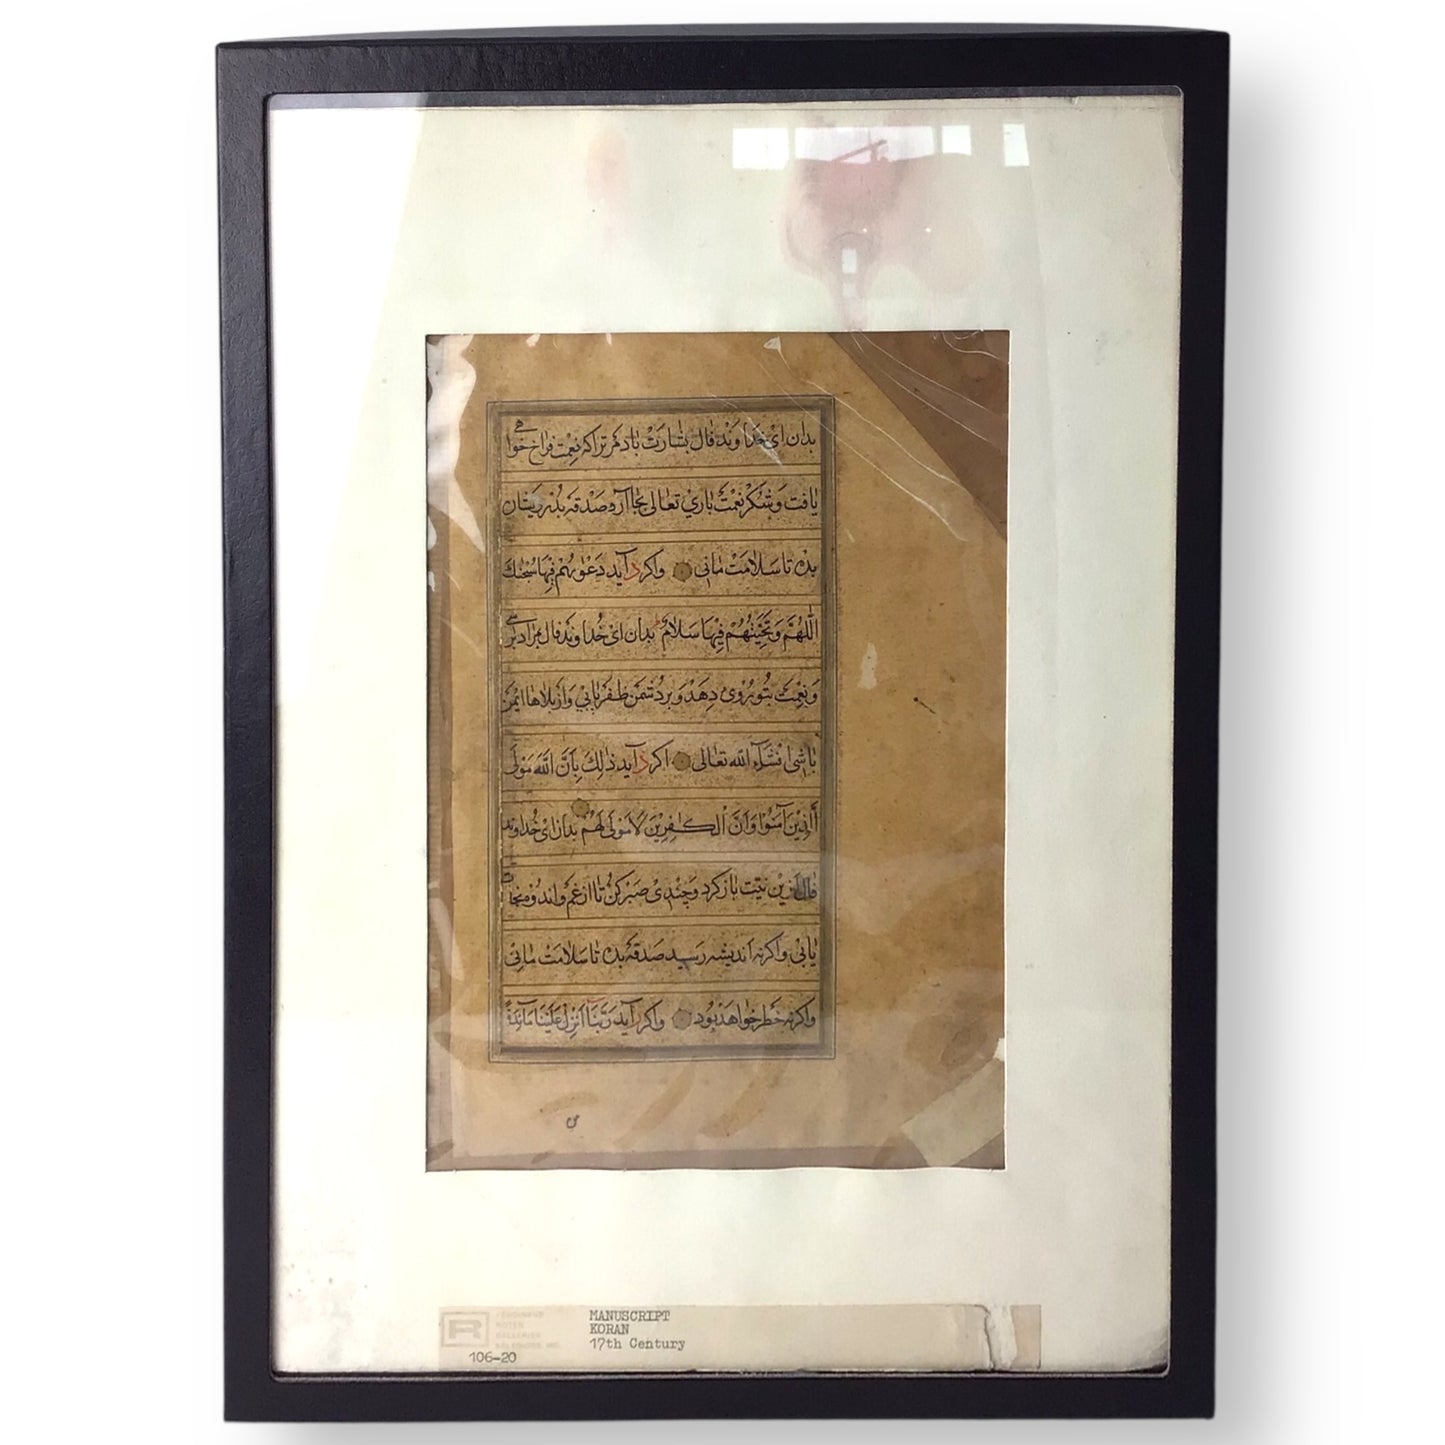 بدان ای خداوند فال بشارت باد مر ترا که نعمت فراخ خواهی
یافت و شکر نعمت باری تعالی بجا آر و صدقه بدرویشان
بده تا سلامت مانی واکر د آید دعوٰیهم فیها سبحٰنک
اللّٰهم وتحیتهم فیها سلام بدان ای خداوند فال مراد برسی
و نعمت بتو روی دهد و بر دشمن ظفر یابی و از بلاها ایمن
باشی انشآء الله تعالی اکر د آید ذٰلک بان الله مولی
الذین آمنوا وان الکٰفرین لا مولی لهم بدان ای خداوند
فال ازین نیت باز کرد و چندی صبر کن تا از غم و اندوه نجات
یابی واکر نه اندیشه رسید صدقه بده تا سلامت مانی
واکر نه خطر خواهد بود واکر آید ربنآ انزل علینا مآئدة
MANUSCRIPT
KORAN
17th Century
FERDINAND
ROTEN
GALLERIES
BALTIMORE MD.
R
106-20